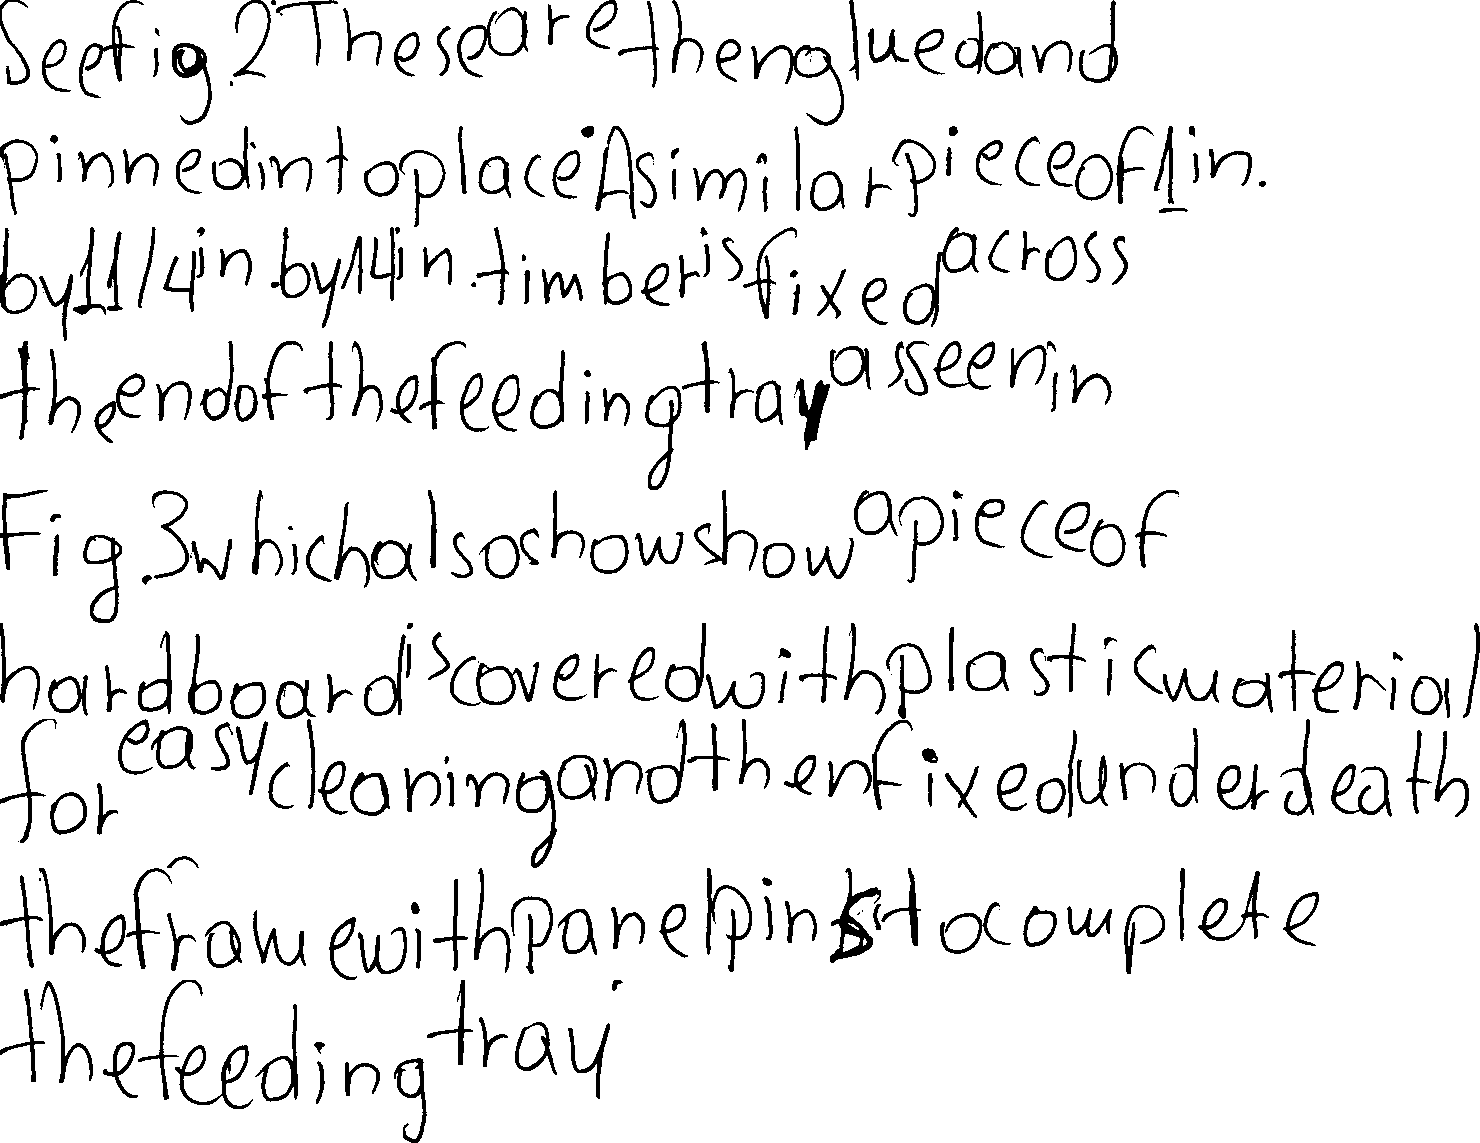 See fig. 2. These are then glued and
pinned into place. A similar piece of 1 in.
by 1 1/4 in. by 14 in. timber is fixed across
the end of the feeding tray as seen in
Fig. 3 which also show show a piece of
hardboard is covered with plastic material
for easy cleaning and then fixed underdeath
the frame with panel pins to complete
the feeding tray.